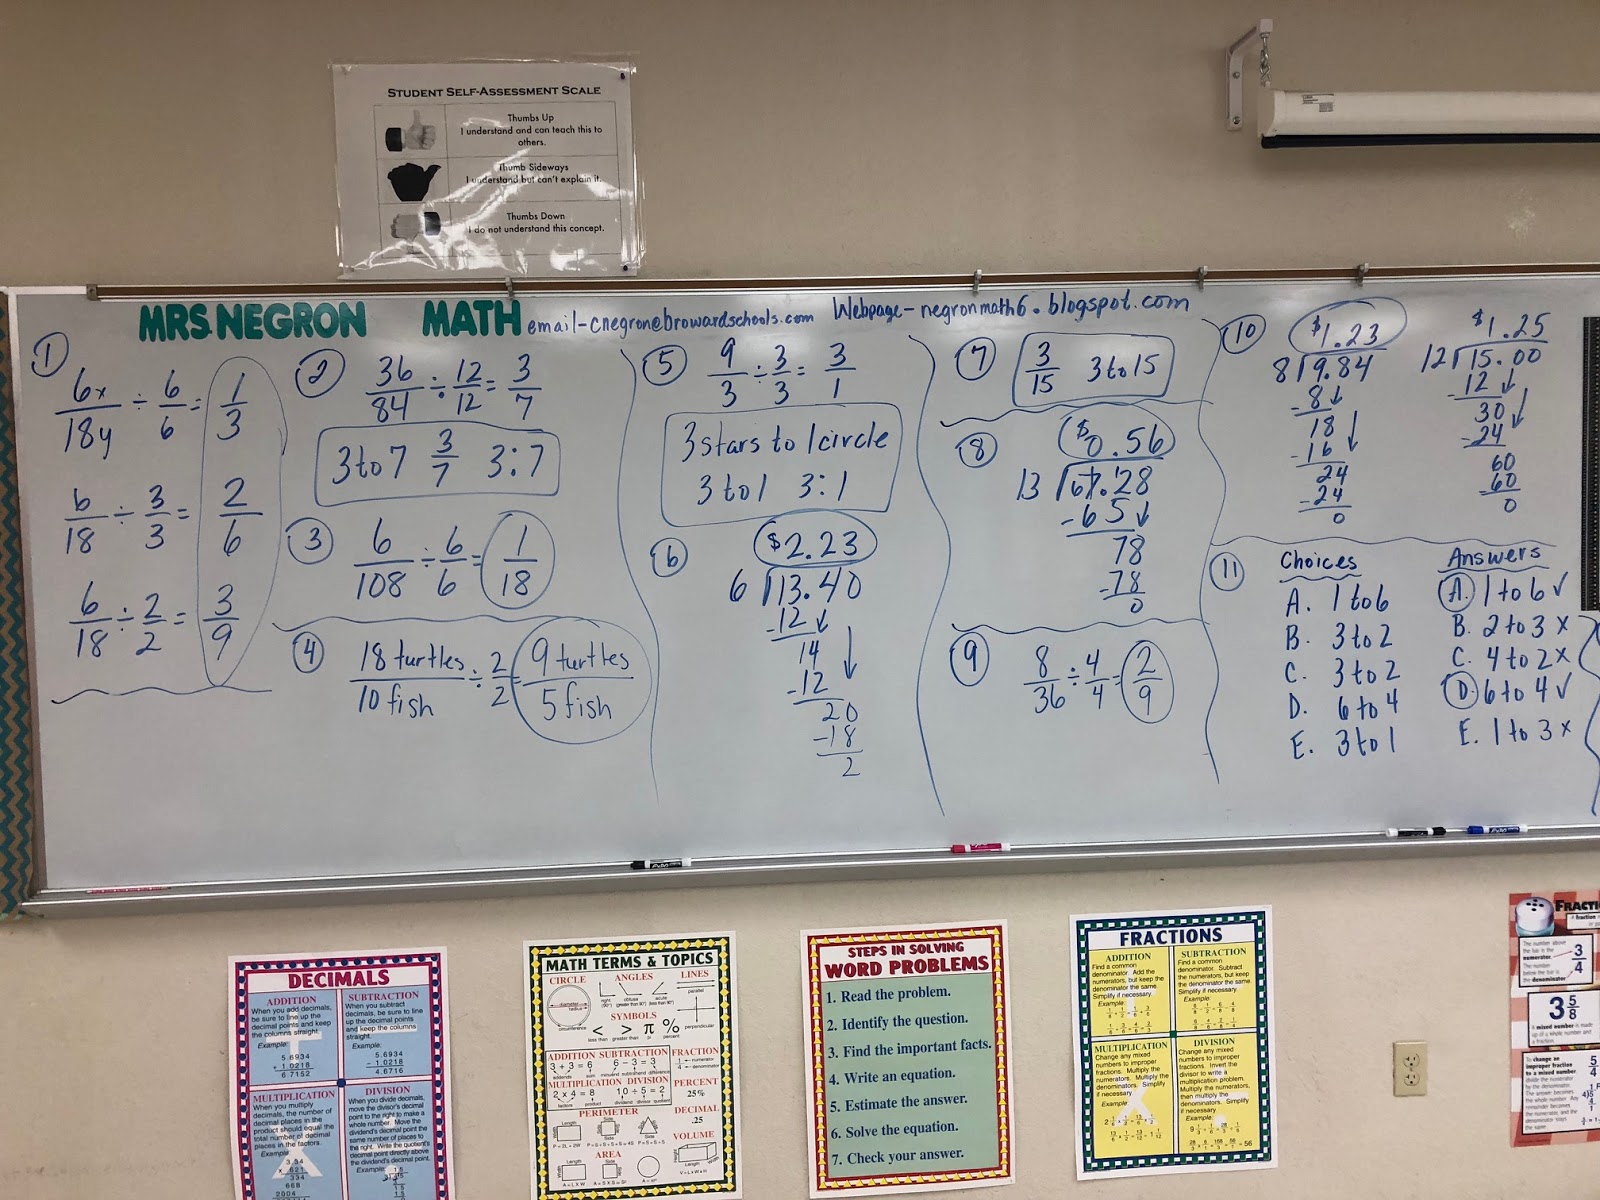 STUDENT SELF-ASSESSMENT SCALE
Thumbs Up
I understand and can teach this to
others.
Thumb Sideways
I understand but can't explain it.
Thumbs Down
I do not understand this concept.
MRS. NEGRON MATH email-cnegron@browardschools.com Webpage-negronmath6.blogspot.com
1
6x/18y ÷ 6/6 = 1/3
6/18 ÷ 3/3 = 2/6
6/18 ÷ 2/2 = 3/9
2
36/84 ÷ 12/12 = 3/7
3 to 7 3/7 3:7
3
6/108 ÷ 6/6 = 1/18
4
18 turtles/10 fish ÷ 2/2 = 9 turtles/5 fish
5
9/3 ÷ 3/3 = 3/1
3 stars to 1 circle
3 to 1 3:1
6
$2.23
6 13.40
-12
14
-12
20
-18
2
7
3/15 3 to 15
8
$0.56
13 67.28
-65
78
-78
0
9
8/36 ÷ 4/4 = 2/9
10
$1.23
8 9.84
-8
18
-16
24
-24
0
$1.25
12 15.00
-12
30
-24
60
60
0
11
Choices
A. 1 to 6
B. 3 to 2
C. 3 to 2
D. 6 to 4
E. 3 to 1
Answers
A. 1 to 6 ✓
B. 2 to 3 x
C. 4 to 2 x
D. 6 to 4 ✓
E. 1 to 3 x
DECIMALS
ADDITION
When you add decimals,
be sure to line up the
decimal points and keep
the columns straight.
Example:
5.6934
+ 1.0218
6.7152
SUBTRACTION
When you subtract
decimals, be sure to line
up the decimal points
and keep the columns
straight.
Example:
5.6934
- 1.0218
4.6716
MULTIPLICATION
When you multiply
decimals, the number of
decimal places in the
product should equal the
total number of decimal
places in the factors.
Example:
3.34
x .621
334
668
2004
DIVISION
When you divide decimals,
move the divisor's decimal
point to the right to make a
whole number. Move the
dividend's decimal point the
same number of places to
the right. Write the quotient's
decimal point directly above
the dividend's decimal point.
Example:
MATH TERMS & TOPICS
CIRCLE
diameter
radius
circumference
ANGLES
right
obtuse
acute
LINES
parallel
perpendicular
SYMBOLS
< > π %
less than greater than pi percent
ADDITION
3 + 3 = 6
SUBTRACTION
6 - 3 = 3
FRACTION
MULTIPLICATION
2 x 4 = 8
factors product
DIVISION
10 ÷ 5 = 2
PERCENT
25%
PERIMETER
DECIMAL
.25
VOLUME
AREA
STEPS IN SOLVING
WORD PROBLEMS
1. Read the problem.
2. Identify the question.
3. Find the important facts.
4. Write an equation.
5. Estimate the answer.
6. Solve the equation.
7. Check your answer.
FRACTIONS
ADDITION
Find a common
denominator. Add the
numerators, but keep
the denominator the same.
Simplify if necessary.
Example:
SUBTRACTION
Find a common
denominator. Subtract
the numerators, but keep
the denominator the same.
Simplify if necessary.
Example:
MULTIPLICATION
Change any mixed
numbers to improper
fractions. Multiply the
numerators. Multiply the
denominators. Simplify
if necessary.
Example:
DIVISION
Change any mixed
numbers to improper
fractions. Invert the
divisor to write a
multiplication problem.
Multiply the numerators,
then multiply the
denominators. Simplify
if necessary.
Example:
The number above
the bar is the
numerator.
The number
below the bar is
the denominator.
3/4
3 5/8
A mixed number is made
up of a whole number and
a fraction.
To change an
improper fraction
to a mixed number,
divide the numerator
by the denominator.